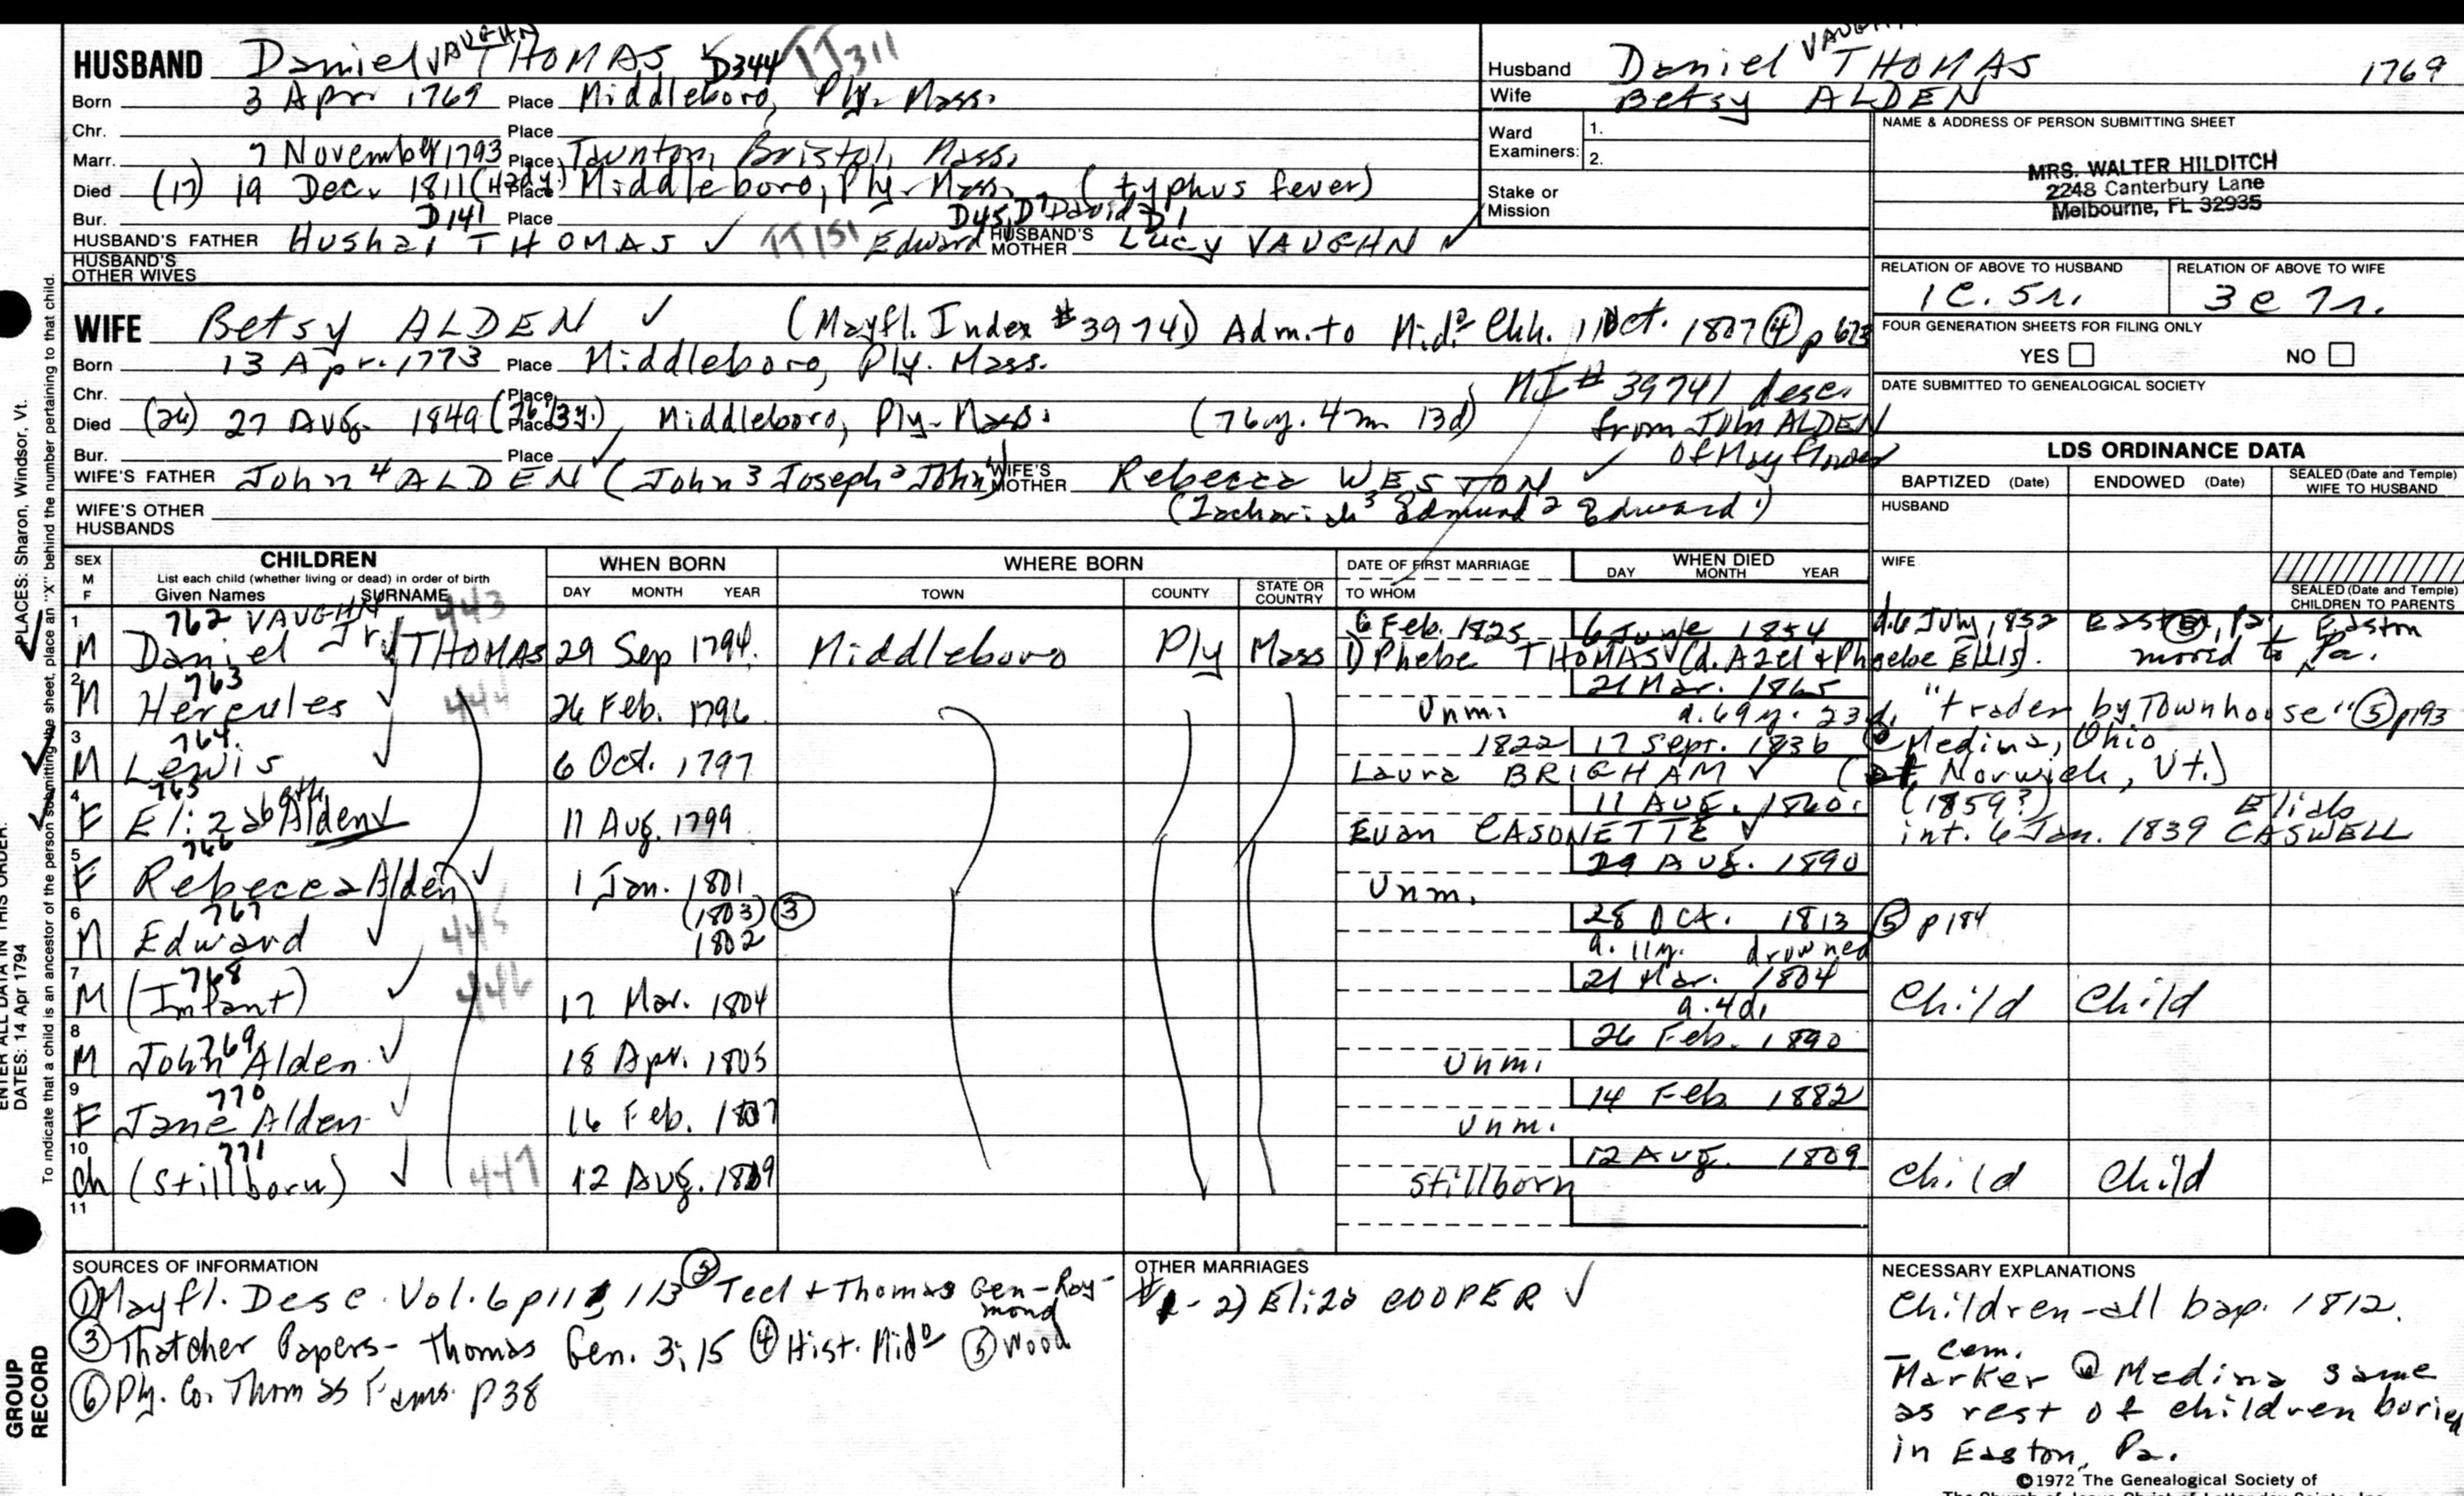 HUSBAND Daniel VAUGHN THOMAS D344 TT311
Born 3 Apr. 1769 Place Middleboro, Ply. Mass.
Chr. Place
Marr. 7 November 1793 Place Taunton, Bristol, Mass.
Died (17) 19 Dec. 1811 Place Middleboro, Ply. Mass. (typhus fever)
Bur. D141 Place D45, D7 David D1
HUSBAND'S FATHER Hushai THOMAS ✓ TT151 Edward HUSBAND'S MOTHER Lucy VAUGHN ✓
HUSBAND'S OTHER WIVES
WIFE Betsy ALDEN ✓ (Mayfl. Index #39741) Adm. to Mid. Chh. Oct. 1807 ④ p 673
Born 13 Apr. 1773 Place Middleboro, Ply. Mass.
Chr. Place MI# 39741 desc.
Died (26) 27 Aug. 1849 Place Middleboro, Ply. Mass. (76y. 4m 13d) from John ALDEN
Bur. Place of Mayflower
WIFE'S FATHER John 4 ALDEN (John 3 Joseph 2 John 1) WIFE'S MOTHER Rebecca WESTON ✓
WIFE'S OTHER HUSBANDS (Zachariah 3 Edmund 2 Edward 1)
Husband Daniel VAUGHN THOMAS 1769
Wife Betsy ALDEN
Ward Examiners: 1.
2.
Stake or Mission
NAME & ADDRESS OF PERSON SUBMITTING SHEET
MRS. WALTER HILDITCH
2248 Canterbury Lane
Melbourne, FL 32935
RELATION OF ABOVE TO HUSBAND RELATION OF ABOVE TO WIFE
1c. 5r. 3c 7r.
FOUR GENERATION SHEETS FOR FILING ONLY
YES NO
DATE SUBMITTED TO GENEALOGICAL SOCIETY
LDS ORDINANCE DATA
BAPTIZED (Date) ENDOWED (Date) SEALED (Date and Temple) WIFE TO HUSBAND
HUSBAND
WIFE
SEALED (Date and Temple) CHILDREN TO PARENTS
SEX M F CHILDREN WHEN BORN WHERE BORN DATE OF FIRST MARRIAGE WHEN DIED
List each child (whether living or dead) in order of birth
Given Names SURNAME DAY MONTH YEAR TOWN COUNTY STATE OR COUNTRY TO WHOM DAY MONTH YEAR
1 762 VAUGHN 443 6 Feb. 1825 6 June 1854 d. 6 July, 1852 Easton, Pa. Easton
M Daniel Jr. THOMAS 29 Sep 1794. Middleboro Ply Mass 1) Phebe THOMAS ✓ (d. Azel + Phoebe ELLIS). moved to Pa.
2 763 444 21 Mar. 1865
M Hercules ✓ 26 Feb. 1796 Unm. a. 69y. 23d. "trader by Townhouse" ⑤ p193
3 764 1822 17 Sept. 1836 Medina, Ohio
M Lewis ✓ 6 Oct. 1797 Laura BRIGHAM ✓ (at Norwich, Vt.)
4 765 11 Aug. 1860. (1859?) Elido
F Elizabeth Alden ✓ 11 Aug. 1799 Evan CASONETTE ✓ int. 6 Jan. 1839 CASWELL
5 766 29 Aug. 1890
F Rebecca Alden ✓ 1 Jan. 1801 Unm.
6 767 445 (1803) ③ 28 Oct. 1813 ⑤ p 184
M Edward ✓ 1802 a. 11y. drowned
7 768 446 21 Mar. 1804
M (Infant) ✓ 17 Mar. 1804 a. 4d. Child Child
8 769 26 Feb. 1890
M John Alden ✓ 18 Apr. 1805 Unm.
9 770 14 Feb 1882
F Jane Alden ✓ 16 Feb. 1807 Unm.
10 771 447 12 Aug. 1809
Ch (Stillborn) ✓ 12 Aug. 1809 Stillborn Child Child
11
SOURCES OF INFORMATION
① Mayfl. Desc. Vol. 6 p 113 ② Teel + Thomas Gen - Raymond
③ Thatcher Papers - Thomas Gen. 3; 15 ④ Hist. Mid. ⑤ Wood
⑥ Ply. Co. Thomas Fams. p 38
OTHER MARRIAGES
#1 - 2) Eliza COOPER ✓
NECESSARY EXPLANATIONS
Children - all bap. 1812.
cem.
Marker @ Medina same
as rest of children buried
in Easton, Pa.
©1972 The Genealogical Society of
The Church of Jesus Christ of Latter-day Saints, Inc.
PLACES: Sharon, Windsor, Vt.
ENTER ALL DATA IN THIS ORDER:
DATES: 14 Apr 1794
To indicate that a child is an ancestor of the person submitting the sheet, place an "X" behind the number pertaining to that child.
GROUP RECORD